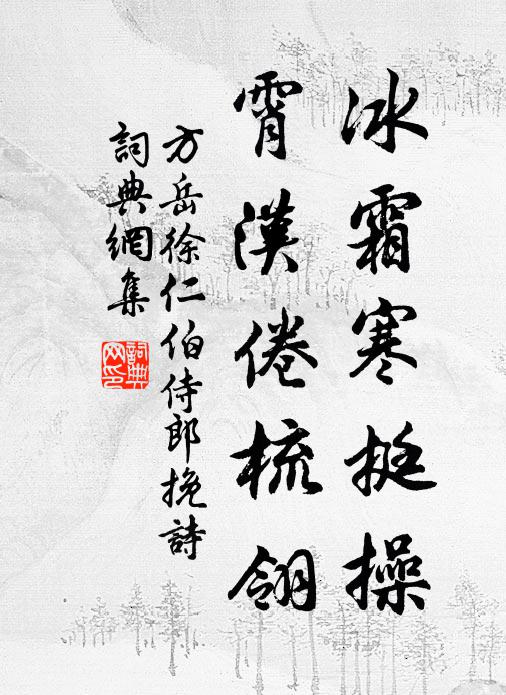 冰霜寒挺操
霄漢倦梳翎
方岳徐仁伯侍郎挽詩
詞典網集
詞典網印